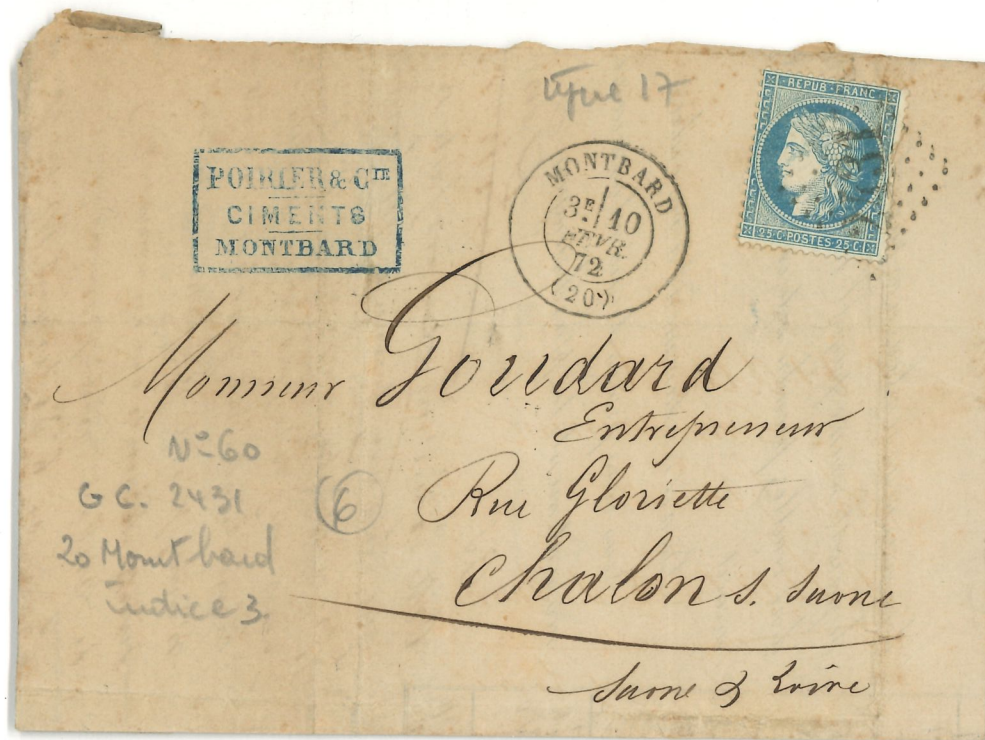 type 17
REPUB·FRANC
25·C·POSTES·25·C
POIRIER & Cⁱᵉ
CIMENTS
MONTBARD
MONTBARD
3ᴱ 10
FEVR.
72
(20)
Monsieur Goudard
Entrepreneur
Rue Gloriette
Chalon s. Saone
Saone & Loire
N° 60
GC. 2431
20 Montbard
indice 3.
6